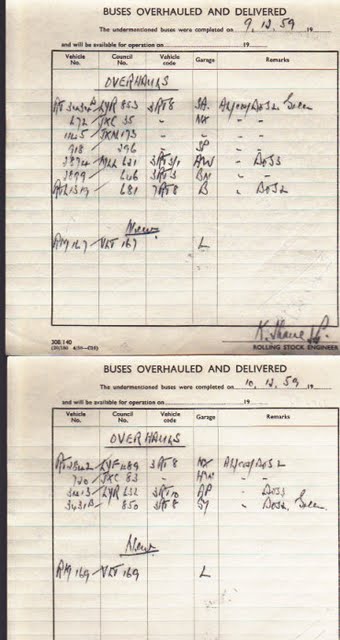 BUSES OVERHAULED AND DELIVERED
The undermentioned buses were completed on 9.12.59 19
and will be available for operation on 19
Vehicle No. Council No. Vehicle code Garage Remarks
OVERHAULS
LYR 853 3RT8 SA Green
672 JXC 35 " NX "
1125 JXN 153 " " "
918 " 296 " SP "
3874 MLL 621 3RT3/1 HW " BOSS
3899 " 646 3RT3 BN " "
RTL1319 " 681 7RT8 B "
New
RM 167 VLT 167 L
308.140
ROLLING STOCK ENGINEER
BUSES OVERHAULED AND DELIVERED
The undermentioned buses were completed on 10.12.59 19
and will be available for operation on 19
Vehicle No. Council No. Vehicle code Garage Remarks
OVERHAULS
LYF 489 3RT8 NX
720 JXC 83 " HW "
LYR 632 3RT10 AP " BOSS
" 850 3RT8 " Green
New
RM 169 VLT 169 L